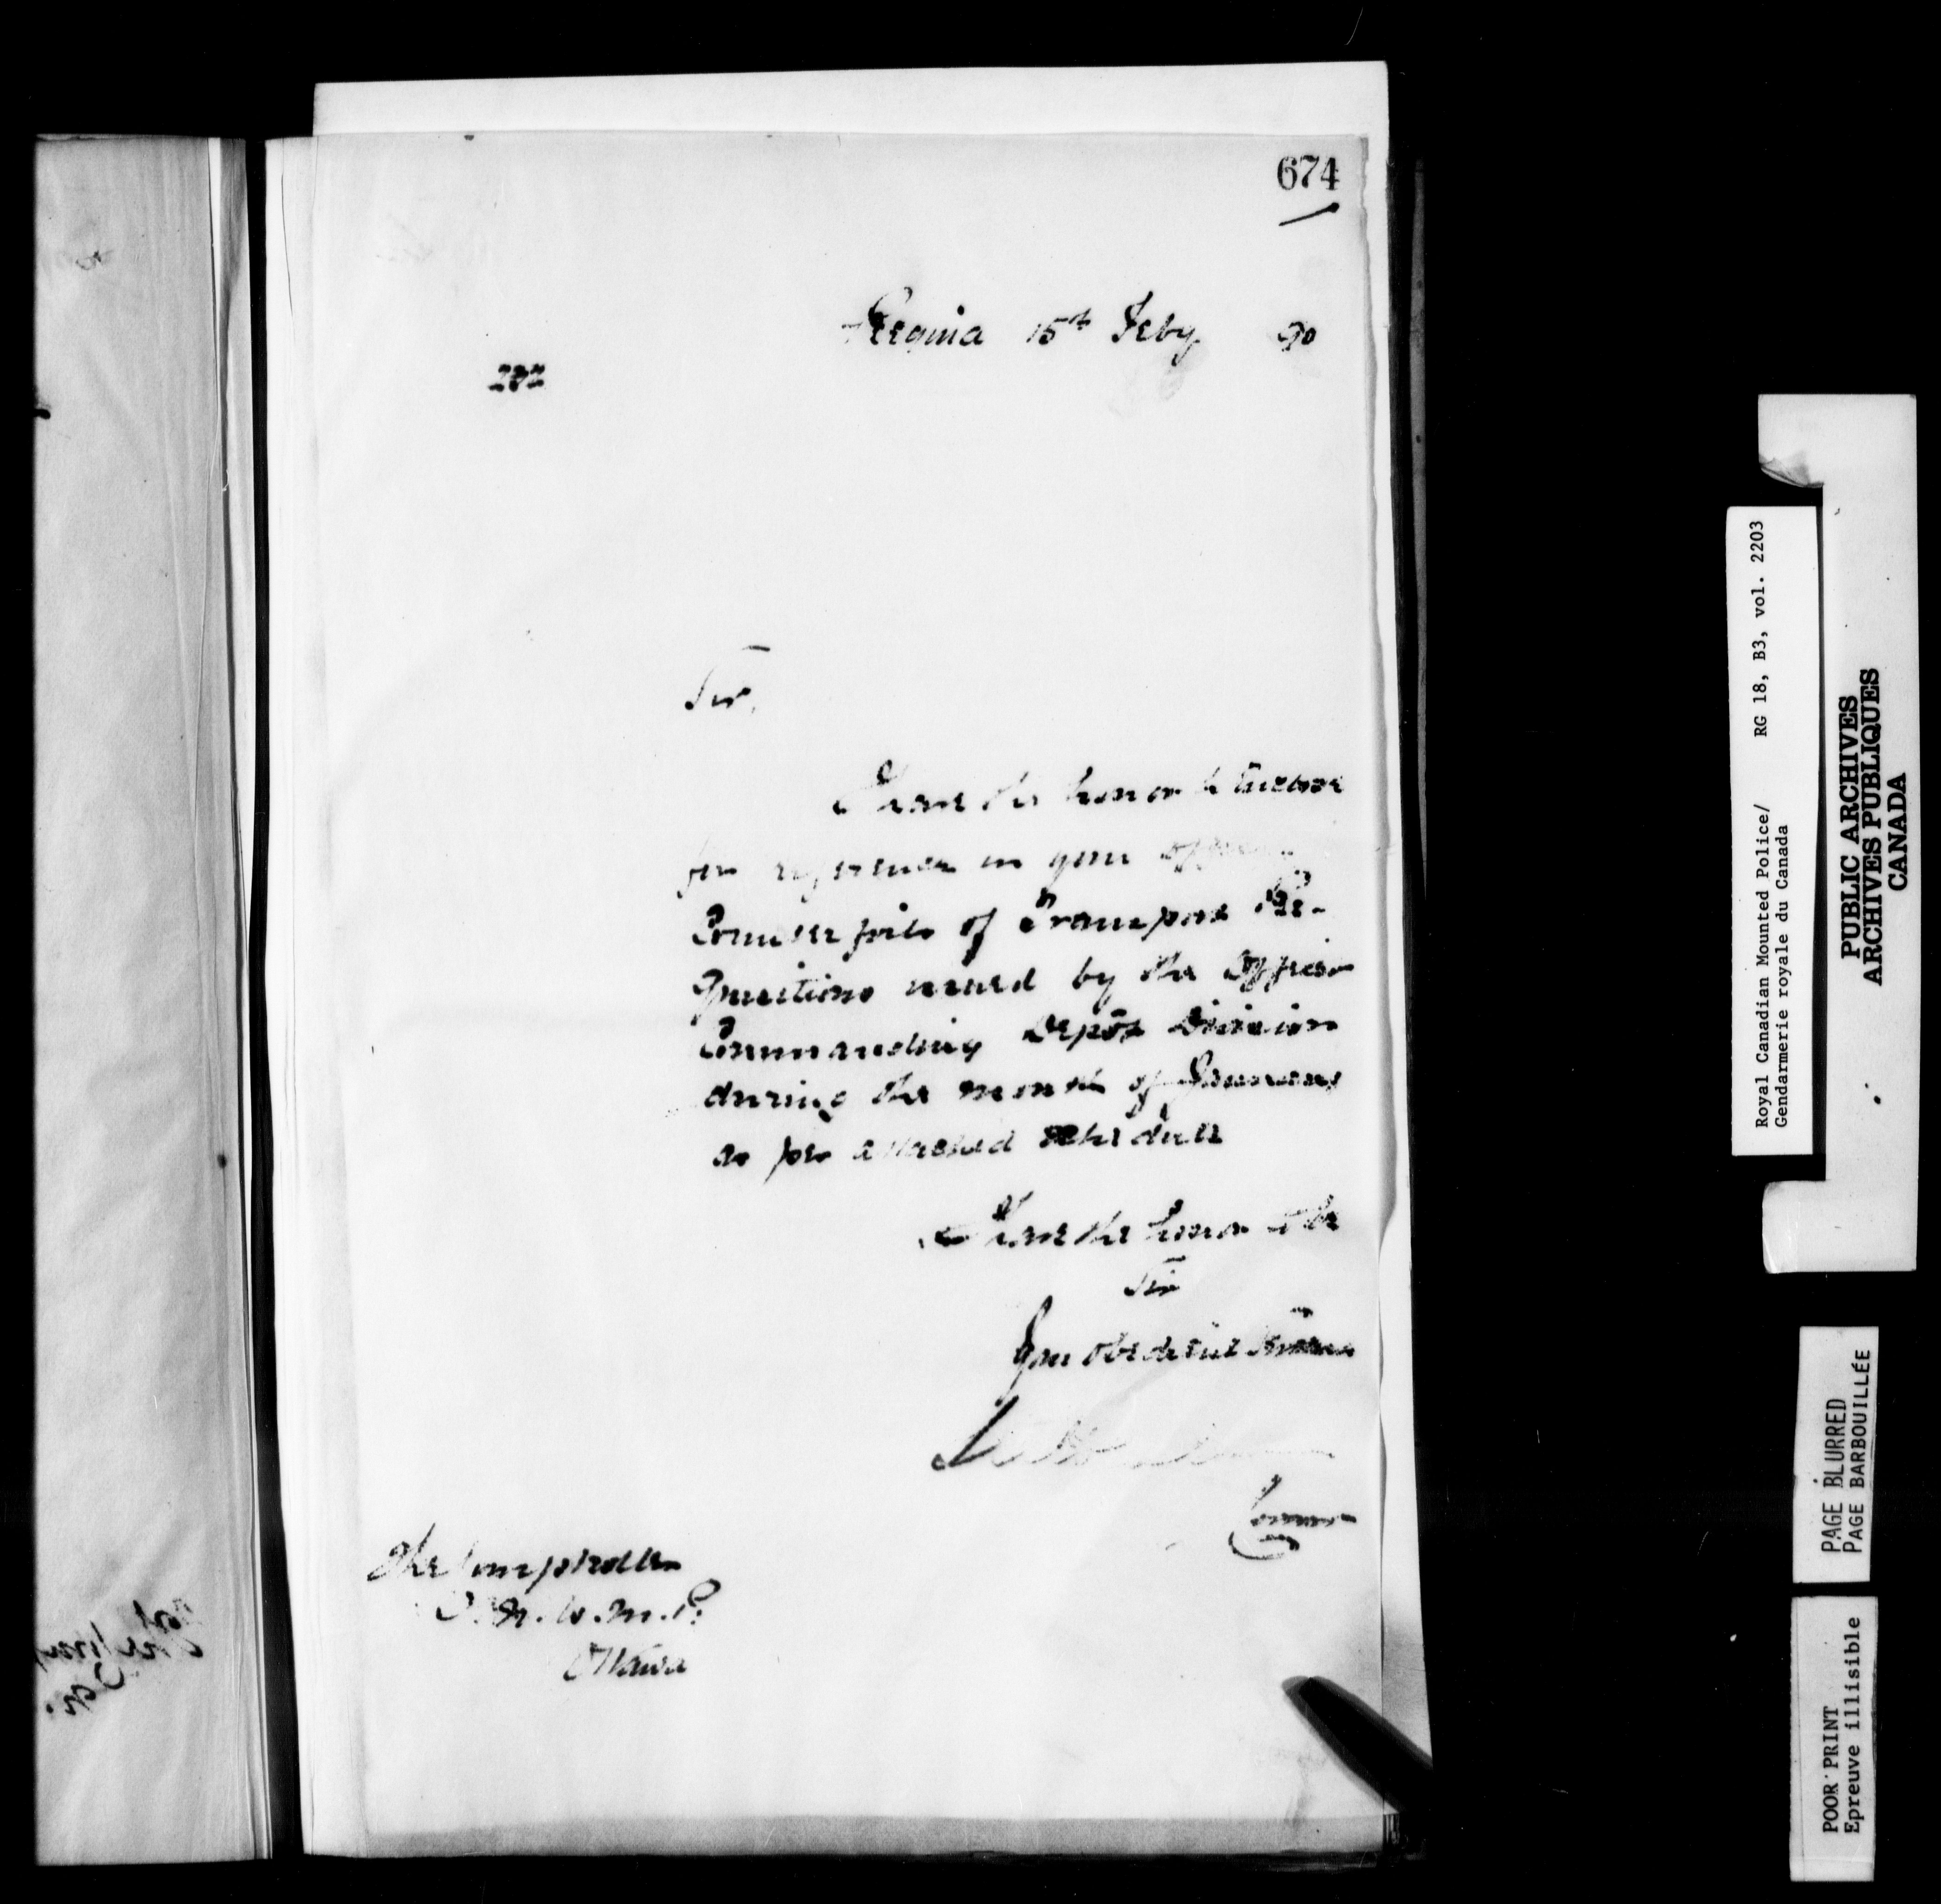 674
Regina 15th Feby 90
282
Sir,
I have the honor to enclose
for reference in your office
Counterfoils of Transport Re-
quisitions issued by the Officer
Commanding Depôt Division
during the month of January
as per attached schedule
I have the honor to be
Sir
Your obedient Servant
Commr
The Comptroller
N.W.M.P.
Ottawa
Royal Canadian Mounted Police/ RG 18, B3, vol. 2203
Gendarmerie royale du Canada
PUBLIC ARCHIVES
ARCHIVES PUBLIQUES
CANADA
PAGE BLURRED
PAGE BARBOUILLÉE
POOR PRINT
Epreuve illisible